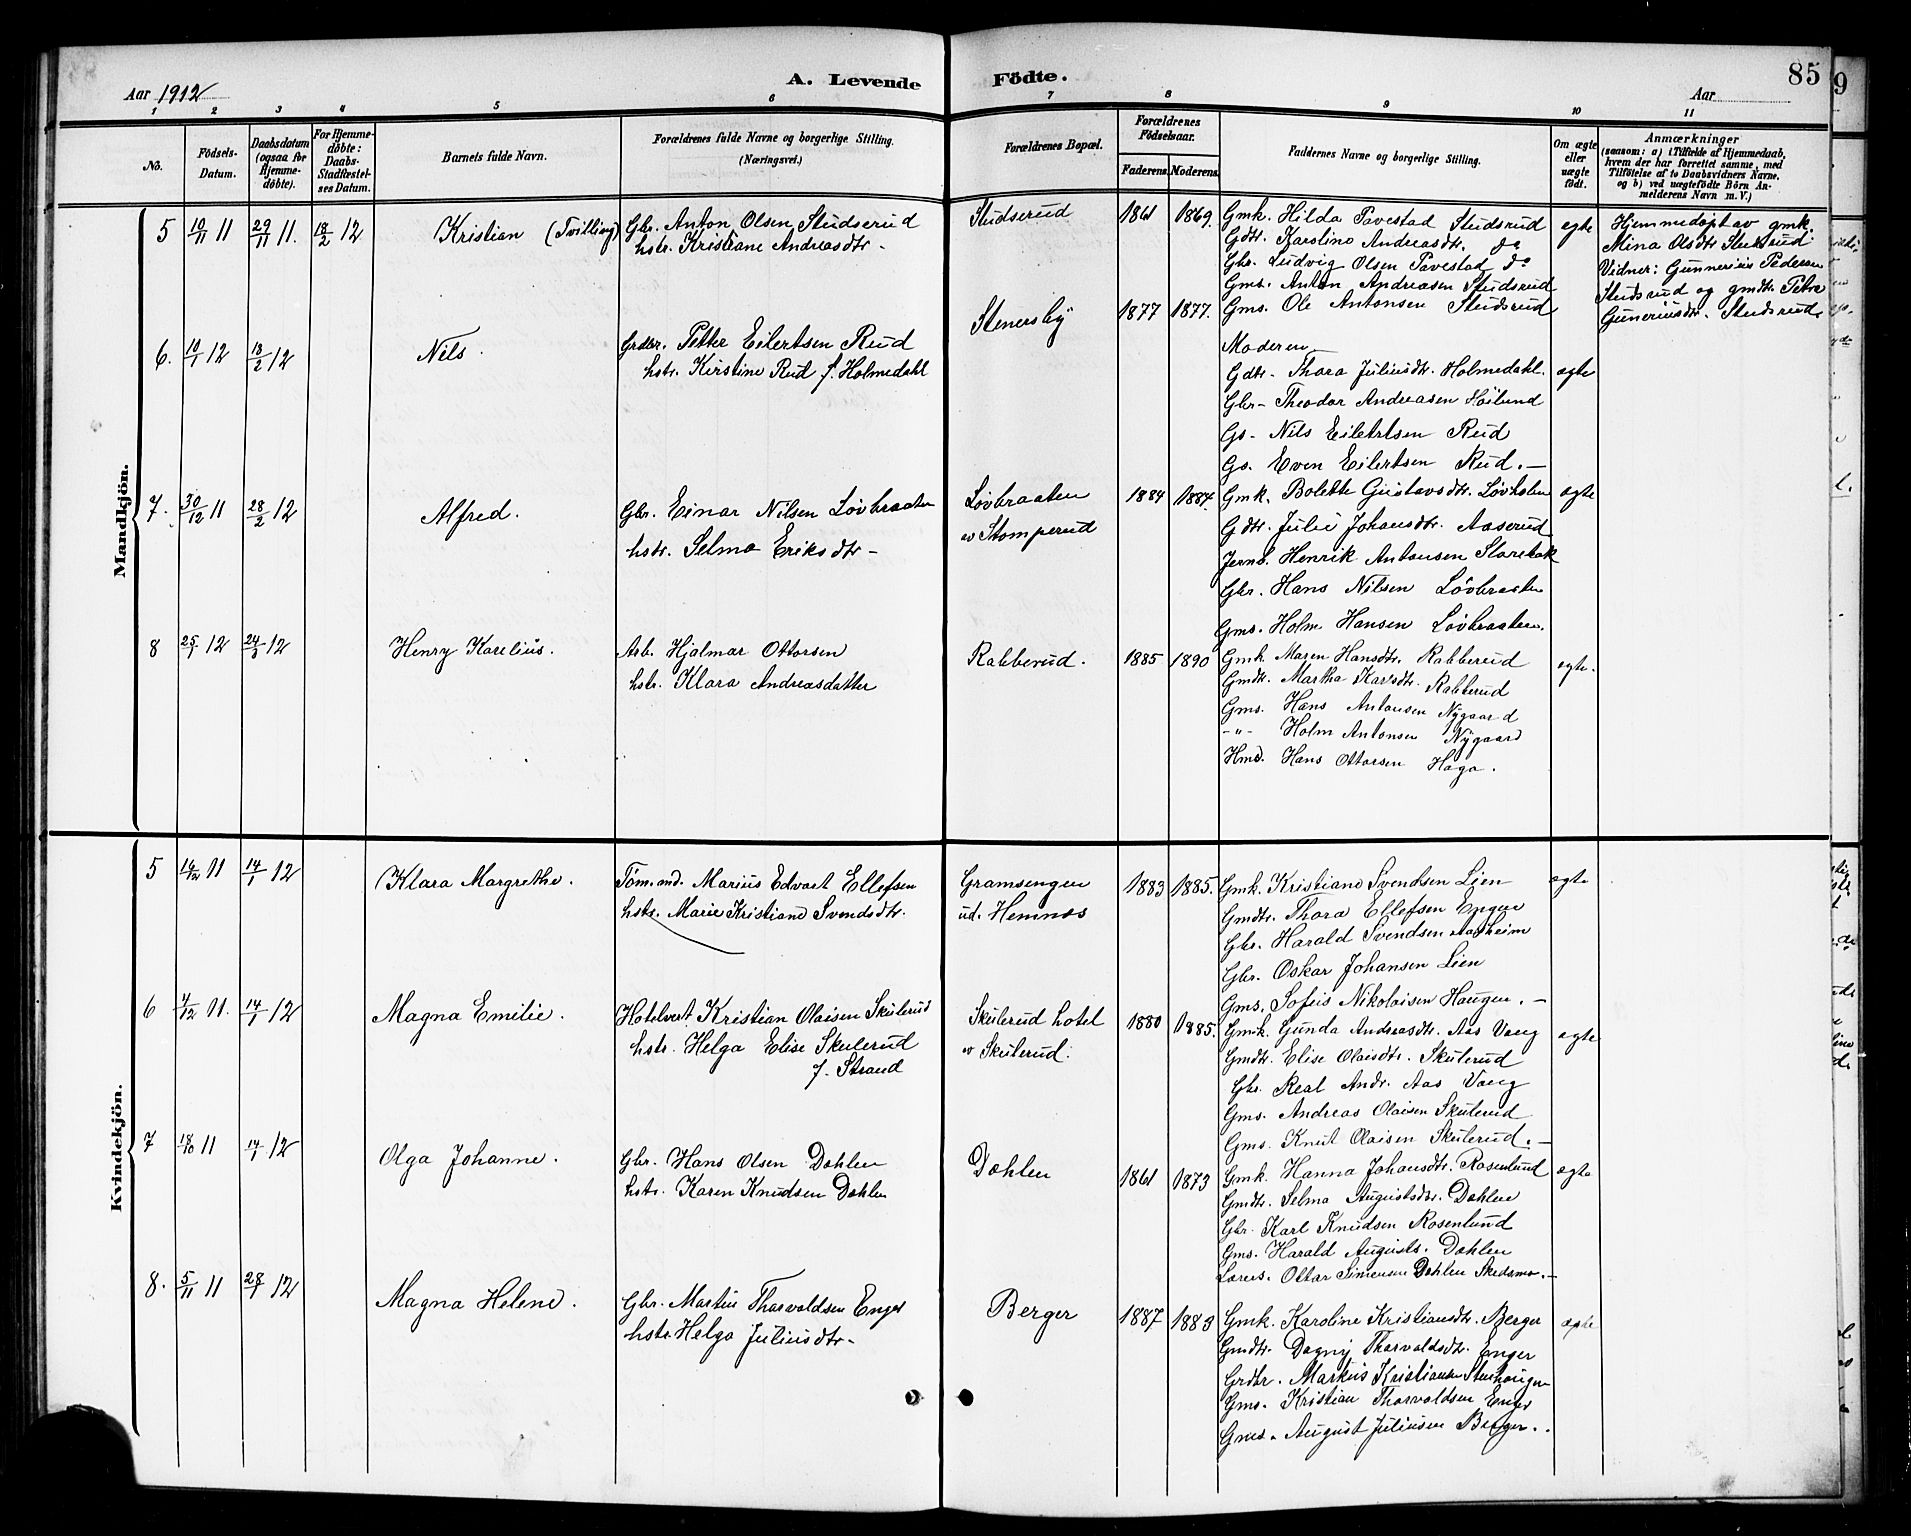 A. Levende Födte.
85
Aar 1912
Aar
1 2 3 4 5 6 7 8 9 10 11
No.
Födsels-Datum.
Daabsdatum (ogsaa for Hjemme-döbte).
For Hjemme-döbte: Daabs-Stadfæstel-ses Datum.
Barnets fulde Navn.
Forældrenes fulde Navne og borgerlige Stilling. (Næringsvei.)
Forældrenes Bopæl.
Forældrenes Födselsaar.
Faderens. Moderens.
Faddernes Navne og borgerlige Stilling.
Om ægte eller uægte födt.
Anmærkninger
(saasom: a) i Tilfælde af Hjemmedaab,
hvem der har forrettet samme, med
Tilföielse af to Daabsvidners Navne,
og b) ved uægtefödte Börn An-
melderens Navn m. V.)
Mandkjön.
5 10/11 11 29/11 11. 18/2 12 Kristian (Tvilling)
Gbr. Anton Olsen Studserud
hstr. Kristiane Andreasdtr.
Studserud 1861 1869.
Gmk. Hilda Tavestad Studsrud
Gdtr. Karoline Andreasdtr. do
Gbr. Ludvig Olsen Tavestad do
Gms. Anton Andreasen Studsrud
Gms. Ole Antonsen Studsrud
ægte
Hjemmedøpt av gmk.
Mina Olsdtr Studsrud.
Vidner: Gunnerius Pedersen
Studsrud og gmdtr. Petra
Guneriusdtr. Studsrud.
6. 10/1 12 18/2 12 Nils.
Grdbr. Petter Eilertsen Rud
hstr. Kirstine Rud f. Holmedahl
Stenersby 1877 1877.
Moderen
Gdtr. Thora Juliusdtr. Holmedahl.
Gbr. Theodor Andreasen Höilund
Gs. Nils Eilertsen Rud
Gs. Even Eilertsen Rud.
ægte
7. 30/12 11 28/2 12 Alfred.
Gbr. Einar Nilsen Lövbraaten
hstr. Selma Eriksdtr.
Lövbraaten
v Stomperud
1884 1887.
Gmk. Bolette Gustavsdtr. Løvholen
Gdtr. Julie Johansdtr. Aaserud
Jernb. Henrik Antonsen
Gbr. Hans Nilsen Lövbraaten
Gms. Holm Hansen Lövbraaten.
ægte
8 25/1 12 24/3 12 Henry Karelius.
Arb. Hjalmar Ottersen
hstr. Klara Andreasdatter
Rabberud. 1885 1890
Gmk. Maren Hansdtr. Rabberud
Gmdtr. Martha Rabberud
Gms. Hans Antonsen Nygaard
-"- Holm Antonsen Nygaard
Hmd. Hans Ottersen Haga.
ægte.
Kvindekjön.
5 16/12 11 14/1 12 Klara Margrethe.
Töm.md. Marius Edvart Ellefsen
hstr. Marie Kristiane Svendsdtr.
Gramsengen
ud. Hemnes
1883 1885.
Gmk. Kristiane Svendsen Lien
Gmdtr. Thora Ellefsen Enger
Gbr. Harald Svendsen Aasheim
Gbr. Oskar Johansen Lien
Gms. Nikolaisen Haugen.
ægte
6 4/12 11. 14/1 12 Magna Emilie.
Hotelvert Kristian Olaisen Skulerud
hstr. Helga Elise Skulerud
f. Strand
Skulerud hotel
v Skulerud.
1880 1885.
Gmk. Gunda Andreasdtr. Aas Vang
Gmdtr. Elise Olaisdtr. Skulerud
Gbr. Real Andr. Aas Vang
Gms. Andreas Olaisen Skulerud
Gms. Knut Olaisen Skulerud.
ægte
7 18/10 11 14/1 12 Olga Johanne.
Gbr. Hans Olsen Dahlen
hstr. Karen Knudsen Dahlen
Dahlen 1861 1873
Gmk. Hanna Johansdtr. Rosenlund
Gmdtr. Selma Augustsdtr. Dahlen
Gbr. Karl Knudsen Rosenlund
Gms. Harald Augusts. Dahlen
Lærers. Ottar Simensen Dahlen Skedsmo.
ægte
8. 5/11 11 28/1 12 Magna Helene.
Gbr. Martin Thorvaldsen Enger
hstr. Helga Juliusdtr.
Berger 1887 1883
Gmk. Karoline Kristiansdtr. Berger
Gmdtr. Dagny Thorvaldsdtr. Enger
Grdbr. Markus Kristiansen Stenhaugen
Gms. Kristian Thorvaldsen Enger
Gms. August Juliusen Berger.
ægte